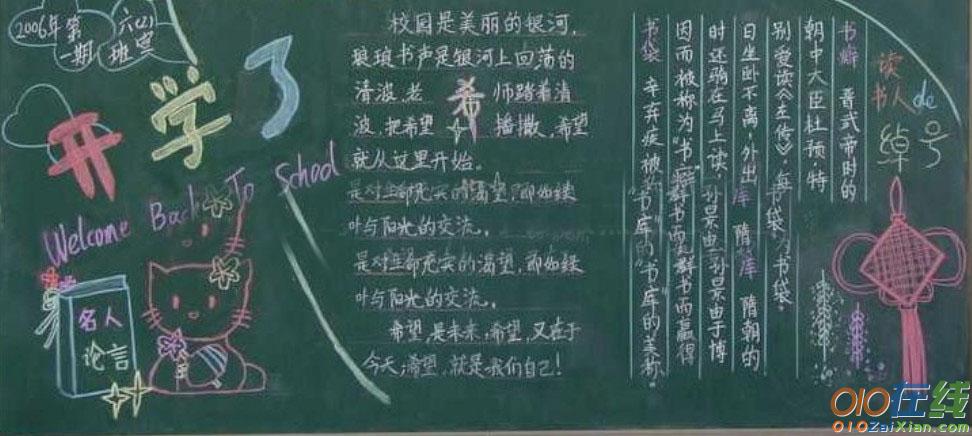 2006年第
一期
六(2)
班宣
开学了
Welcome Back To School
名人
论言
校园是美丽的银河,
琅琅书声是银河上回荡的
清波,老 师踏着清
希
波,把希望 播撒,希望
就从这里开始。
是对生命充实的渴望,即如绿
叶与阳光的交流。
是对生命充实的渴望,即如绿
叶与阳光的交流。
希望,是未来,希望,又在于
今天,希望,就是我们自己!
读
书人de
绰号
书癖 晋武帝时的
朝中大臣杜预,特
别爱读《左传》,每
日坐卧不离,外出
时还驼在马上读,
因而被称为"书
书袋
书袋
隋朝的
孙景由于博
群书而赢得
"书库"的美称。
010在线
010ZaiXian.com